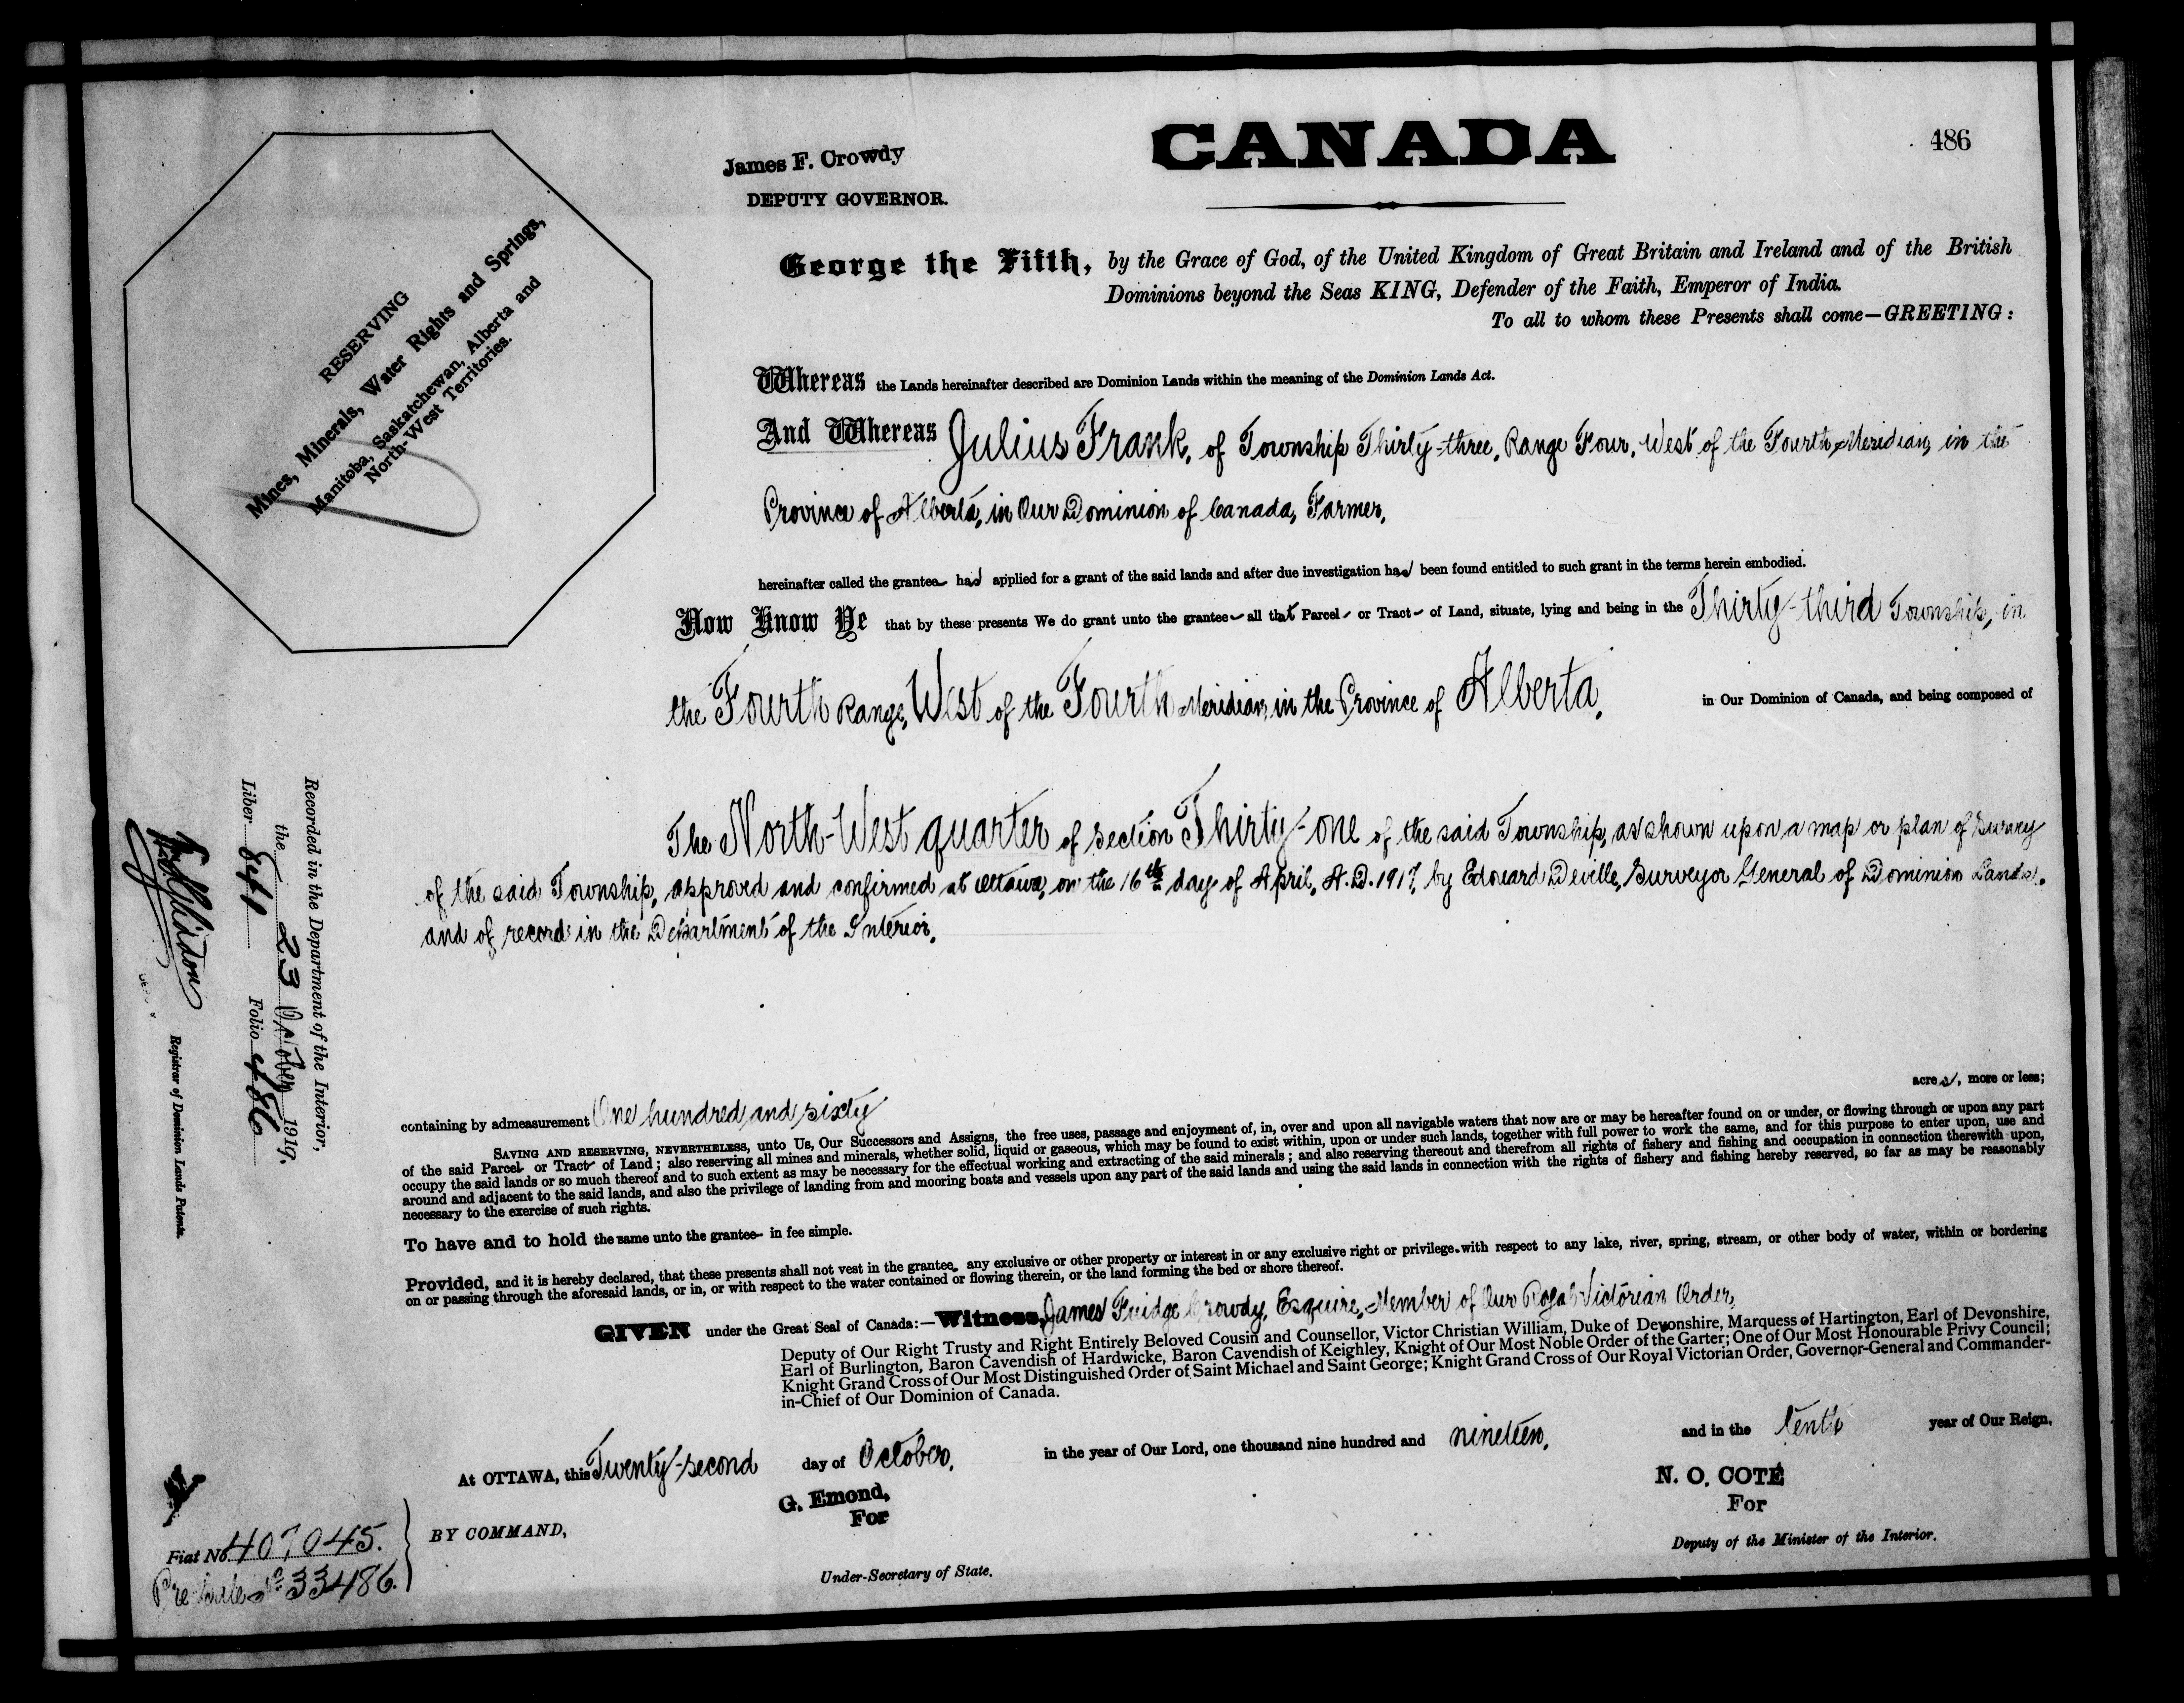 CANADA
486
James F. Crowdy
DEPUTY GOVERNOR.
George the Fifth, by the Grace of God, of the United Kingdom of Great Britain and Ireland and of the British
Dominions beyond the Seas KING, Defender of the Faith, Emperor of India.
To all to whom these Presents shall come—GREETING:
RESERVING
Mines, Minerals, Water Rights and Springs,
Manitoba, Saskatchewan, Alberta and
North-West Territories.
Whereas the Lands hereinafter described are Dominion Lands within the meaning of the Dominion Lands Act.
And Whereas Julius Frank, of Township Thirty-three, Range Four, West of the Fourth Meridian, in the
Province of Alberta, in Our Dominion of Canada, Farmer,
hereinafter called the grantee has applied for a grant of the said lands and after due investigation has been found entitled to such grant in the terms herein embodied.
Now Know Ye that by these presents We do grant unto the grantee all that Parcel or Tract of Land, situate, lying and being in the Thirty-third Township, in
the Fourth Range, West of the Fourth Meridian, in the Province of Alberta, in Our Dominion of Canada, and being composed of
The North-West quarter of section Thirty-one of the said Township, as shown upon a map or plan of survey
of the said Township, approved and confirmed at Ottawa, on the 16th day of April, A.D. 1917, by Edouard Deville, Surveyor General of Dominion Lands,
and of record in the Department of the Interior,
Recorded in the Department of the Interior,
the 23 October 1919.
Liber 841 Folio 486
Registrar of Dominion Lands Patents.
acres, more or less;
containing by admeasurement One hundred and sixty
SAVING AND RESERVING, NEVERTHELESS, unto Us, Our Successors and Assigns, the free uses, passage and enjoyment of, in, over and upon all navigable waters that now are or may be hereafter found on or under, or flowing through or upon any part
of the said Parcel or Tract of Land; also reserving all mines and minerals, whether solid, liquid or gaseous, which may be found to exist within, upon or under such lands, together with full power to work the same, and for this purpose to enter upon, use and
occupy the said lands or so much thereof and to such extent as may be necessary for the effectual working and extracting of the said minerals; and also reserving thereout and therefrom all rights of fishery and fishing and occupation in connection therewith upon,
around and adjacent to the said lands, and also the privilege of landing from and mooring boats and vessels upon any part of the said lands and using the said lands in connection with the rights of fishery and fishing hereby reserved, so far as may be reasonably
necessary to the exercise of such rights.
To have and to hold the same unto the grantee in fee simple.
Provided, and it is hereby declared, that these presents shall not vest in the grantee, any exclusive or other property or interest in or any exclusive right or privilege with respect to any lake, river, spring, stream, or other body of water, within or bordering
on or passing through the aforesaid lands, or in, or with respect to the water contained or flowing therein, or the land forming the bed or shore thereof.
GIVEN under the Great Seal of Canada:—Witness, James Fuidge Crowdy, Esquire, Member of Our Royal Victorian Order,
Deputy of Our Right Trusty and Right Entirely Beloved Cousin and Counsellor, Victor Christian William, Duke of Devonshire, Marquess of Hartington, Earl of Devonshire,
Earl of Burlington, Baron Cavendish of Hardwicke, Baron Cavendish of Keighley, Knight of Our Most Noble Order of the Garter; One of Our Most Honourable Privy Council;
Knight Grand Cross of Our Most Distinguished Order of Saint Michael and Saint George; Knight Grand Cross of Our Royal Victorian Order, Governor-General and Commander-
in-Chief of Our Dominion of Canada.
At OTTAWA, this Twenty-second day of October, in the year of Our Lord, one thousand nine hundred and nineteen, and in the tenth year of Our Reign.
BY COMMAND,
G. Emond,
For
Under-Secretary of State.
N. O. COTÉ
For
Deputy of the Minister of the Interior.
Fiat No 407045.
No 33486.